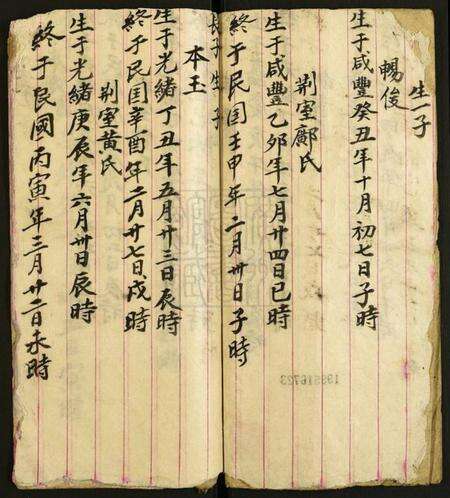 生一子
暢俊
生于咸豐癸丑年十月初七日子時
荆室鄺氏
生于咸豐乙夘年七月廿四日巳時
終于民囯壬申年二月卅日子時
長子生子
本玉
生于光緒丁丑年五月廿三日辰時
終于民囯辛酉年二月廿七日戍時
荆室黄氏
生于光緒庚辰年六月卅日辰時
終于民國丙寅年三月廿二日未時